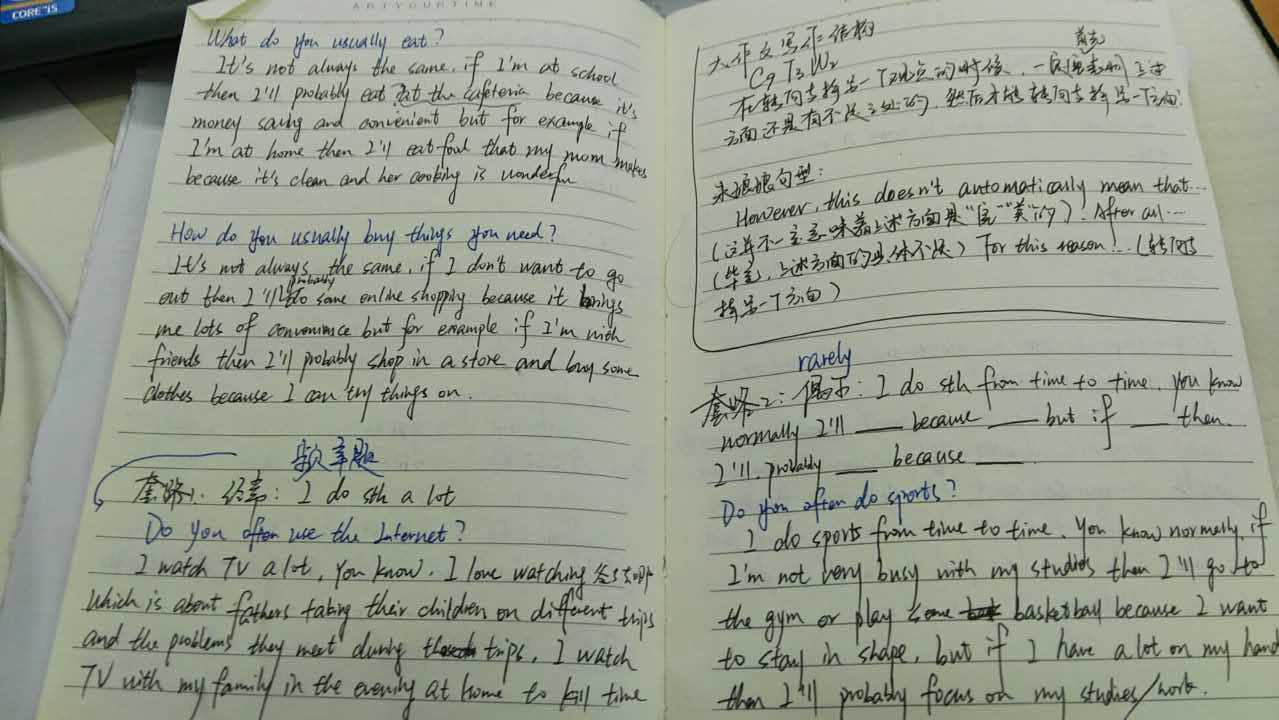 CORE i5
ARTYOURTIME
What do you usually eat?
It's not always the same, if I'm at school
then I'll probably eat at the cafeteria because it's
money saving and convenient but for example if
I'm at home then I'll eat food that my mom makes
because it's clean and her cooking is wonderful
How do you usually buy things you need?
It's not always the same, if I don't want to go
out then I'll probably do some online shopping because it brings
me lots of convenience but for example if I'm with
friends then I'll probably shop in a store and buy some
clothes because I can try things on.
频率题
套路1. 经常: I do sth a lot
Do you often use the Internet?
I watch TV a lot, you know. I love watching
which is about fathers taking their children on different trips
and the problems they meet during trips. I watch
TV with my family in the evening at home to kill time
大作文写作结构
首先
C9 T3 W2
在转向支持另一个观点的时候,一定 表明上述
方面还是有不足之处的,然后才转向支持另一个方面!
句型:
However, this doesn't automatically mean that...
(这并不一定意味着上述方面是"完""美"的)! After all...
(毕竟,上述方面的具体不足) For this reason!... (转向支
持另一个方面)
rarely
套路2: 偶尔: I do sth from time to time. you know
normally I'll ___ because ___ but if ___ then
I'll probably ___ because ___.
Do you often do sports?
I do sports from time to time. You know normally, if
I'm not very busy with my studies then I'll go to
the gym or play some basketball because I want
to stay in shape, but if I have a lot on my hand
then I'll probably focus on my studies/work.